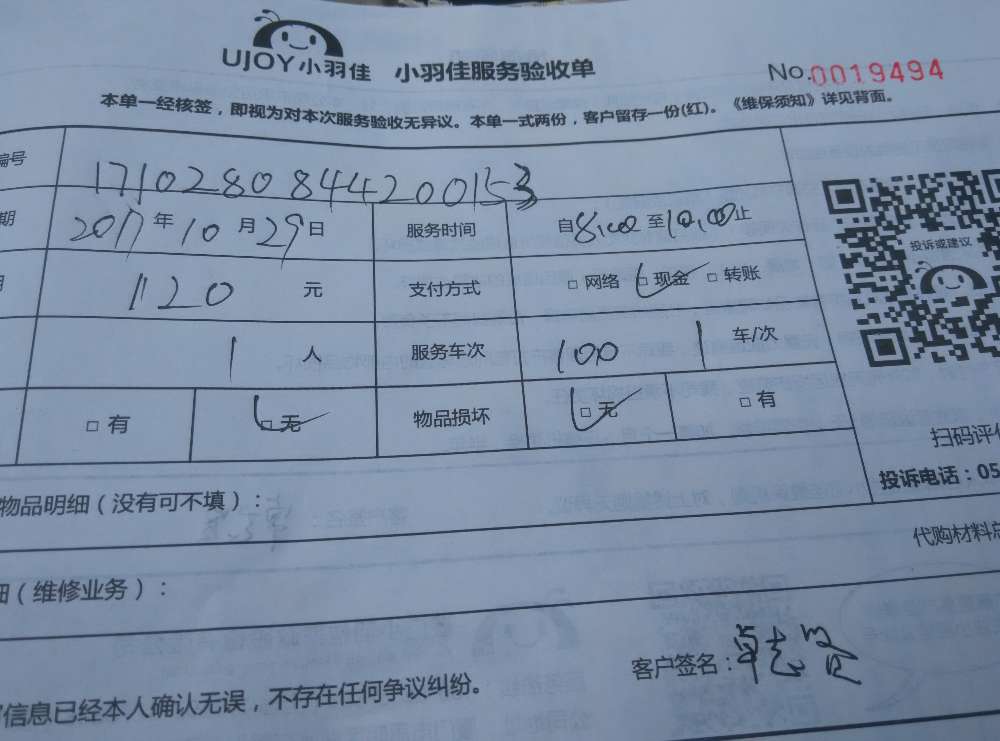 UJOY小羽佳 小羽佳服务验收单 No.0019494
本单一经核签，即视为对本次服务验收无异议。本单一式两份，客户留存一份(红)。《维保须知》详见背面。
编号 1710280844200153
期 2017年10月29日 服务时间 自8:00至10:00止
投诉或建议
1120 元 支付方式 □ 网络 □ 现金 □ 转账
1 人 服务车次 100 1 车/次
□ 有 □ 无 物品损坏 □ 无 □ 有
扫码评
投诉电话：05
物品明细（没有可不填）：
代购材料总
细（维修业务）：
客户签名：
信息已经本人确认无误，不存在任何争议纠纷。